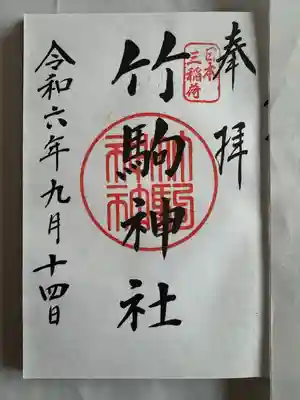 奉拝
日本
三稲荷
竹駒神社
竹駒神社
令和六年九月十四日